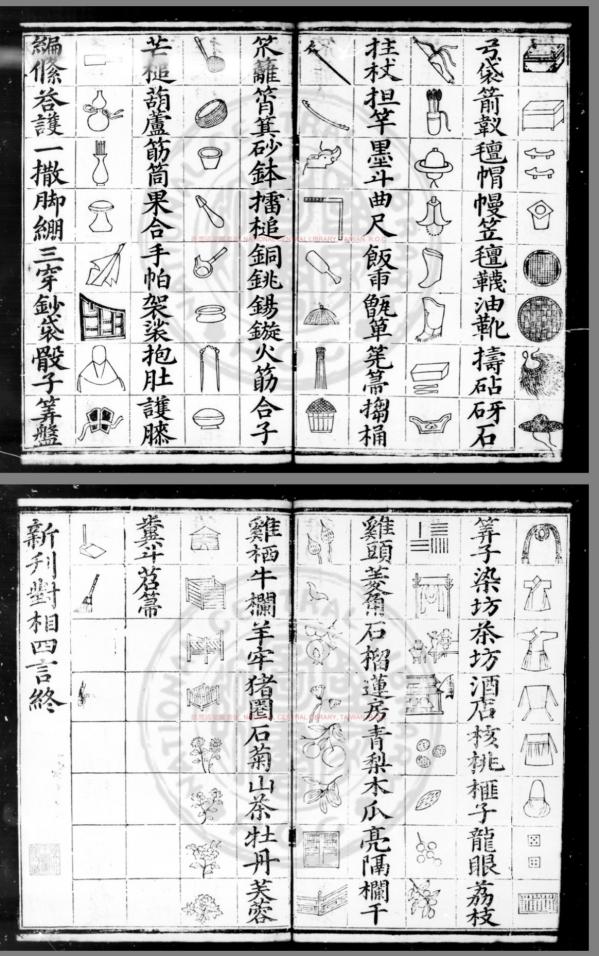 弓袋箭靫氊帽幔笠氊韈油靴擣砧砑石
拄杖担竿墨斗曲尺飯帚甑箄筅箒搊桶
笊籬筲箕砂鉢擂槌銅銚錫鏇火筯合子
芒槌葫蘆筯筒果合手帕袈裟抱肚護膝
編絛荅護一撒脚綳三穿鈔袋骰子筭盤
NATIONAL CENTRAL LIBRARY, TAIWAN, R.O.C
筭子染坊茶坊酒店核桃榧子龍眼荔枝
雞頭菱角石榴蓮房青梨木瓜亮隔欄干
雞栖牛欄羊牢猪圈石菊山茶牡丹芙蓉
糞斗苕箒
新刋對相四言終
NATIONAL CENTRAL LIBRARY, TAIWAN, R.O.C